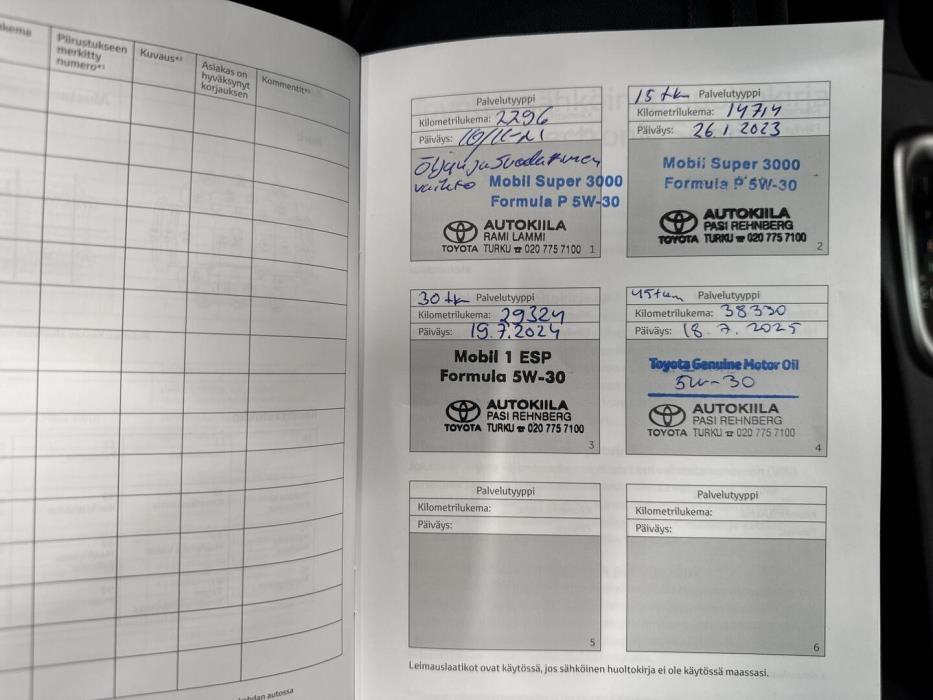 Piirustukseen
merkitty
numero*⁾
Kuvaus*⁾
Asiakas on
hyväksynyt
korjauksen
Kommentit*⁾
Palvelutyyppi
Kilometrilukema: 2296
Päiväys: 10/11-21
Öljyn ja suodattimen
vaihto Mobil Super 3000
Formula P 5W-30
AUTOKIILA
RAMI LAMMI
TOYOTA TURKU ☎ 020 775 7100 1
15 tkm Palvelutyyppi
Kilometrilukema: 14714
Päiväys: 26.1.2023
Mobil Super 3000
Formula P 5W-30
AUTOKIILA
PASI REHNBERG
TOYOTA TURKU ☎ 020 775 7100
2
30 tkm Palvelutyyppi
Kilometrilukema: 29324
Päiväys: 19.7.2024
Mobil 1 ESP
Formula 5W-30
AUTOKIILA
PASI REHNBERG
TOYOTA TURKU ☎ 020 775 7100
3
45 tkm Palvelutyyppi
Kilometrilukema: 38330
Päiväys: 18.7.2025
Toyota Genuine Motor Oil
5W-30
AUTOKIILA
PASI REHNBERG
TOYOTA TURKU ☎ 020 775 7100
4
Palvelutyyppi
Kilometrilukema:
Päiväys:
5
Palvelutyyppi
Kilometrilukema:
Päiväys:
6
Leimauslaatikot ovat käytössä, jos sähköinen huoltokirja ei ole käytössä maassasi.
autossa